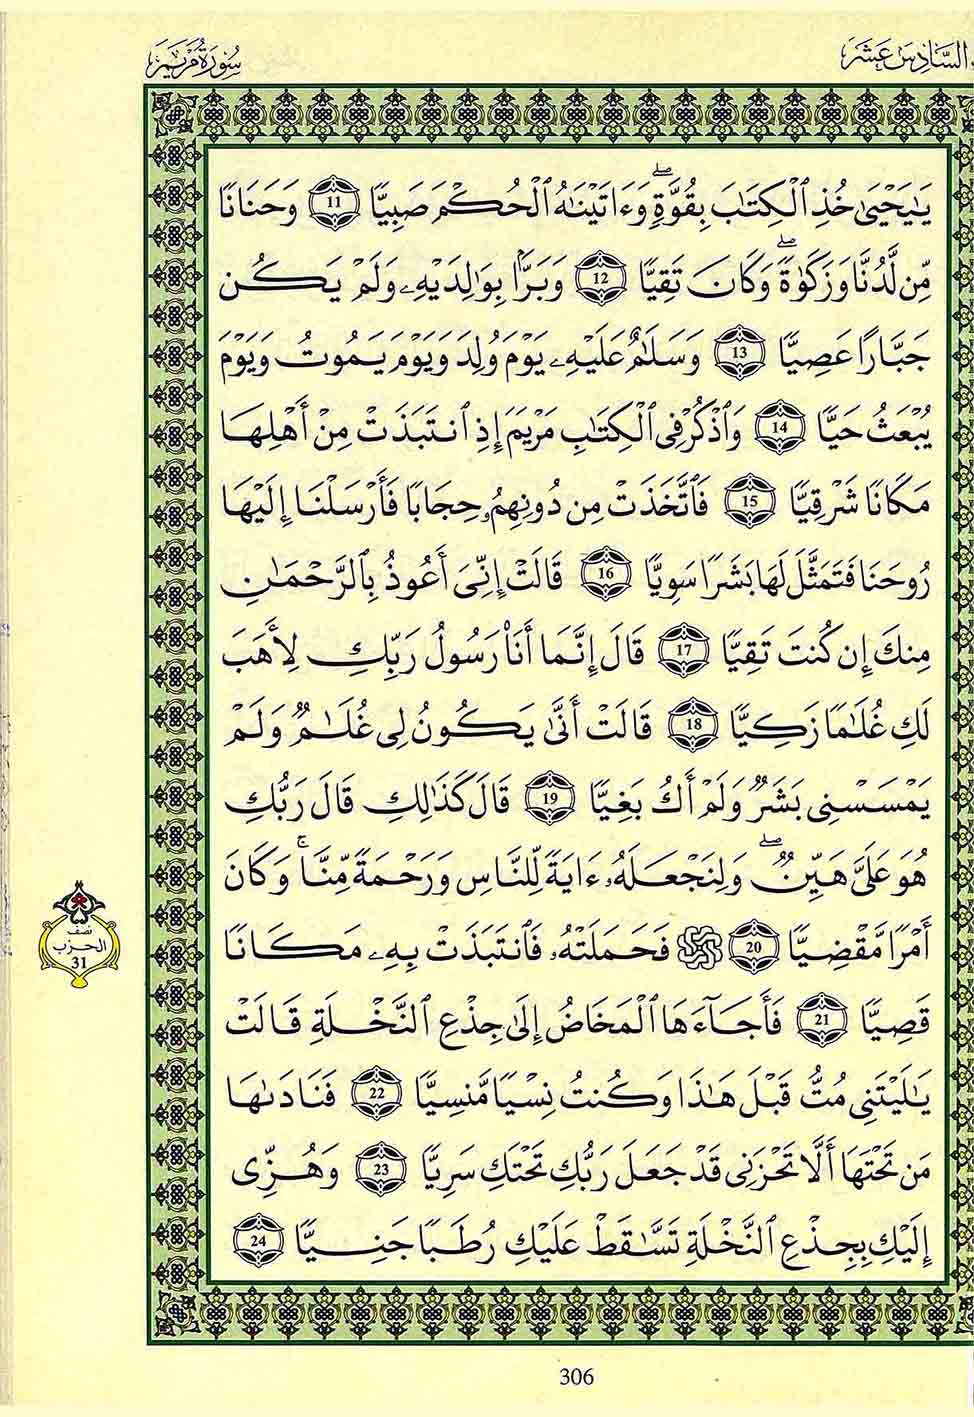 السَّادِسَ عَشَرَ
سُورَةُ مَرْيَمَ
يَٰيَحْيَىٰ خُذِ ٱلْكِتَٰبَ بِقُوَّةٍۖ وَءَاتَيْنَٰهُ ٱلْحُكْمَ صَبِيًّا 11 وَحَنَانًا
مِّن لَّدُنَّا وَزَكَوٰةًۖ وَكَانَ تَقِيًّا 12 وَبَرًّۢا بِوَٰلِدَيْهِۦ وَلَمْ يَكُن
جَبَّارًا عَصِيًّا 13 وَسَلَٰمٌ عَلَيْهِۦ يَوْمَ وُلِدَ وَيَوْمَ يَمُوتُ وَيَوْمَ
يُبْعَثُ حَيًّا 14 وَٱذْكُرْ فِى ٱلْكِتَٰبِ مَرْيَمَ إِذِ ٱنتَبَذَتْ مِنْ أَهْلِهَا
مَكَانًا شَرْقِيًّا 15 فَٱتَّخَذَتْ مِن دُونِهِمُۥ حِجَابًا فَأَرْسَلْنَا إِلَيْهَا
رُوحَنَا فَتَمَثَّلَ لَهَا بَشَرًا سَوِيًّا 16 قَالَتْ إِنِّىَ أَعُوذُ بِٱلرَّحْمَٰنِ
مِنكَ إِن كُنتَ تَقِيًّا 17 قَالَ إِنَّمَا أَنَا۠ رَسُولُ رَبِّكِ لِأَهَبَ
لَكِ غُلَٰمًا زَكِيًّا 18 قَالَتْ أَنَّىٰ يَكُونُ لِى غُلَٰمٌ وَلَمْ
يَمْسَسْنِى بَشَرٌ وَلَمْ أَكُ بَغِيًّا 19 قَالَ كَذَٰلِكِ قَالَ رَبُّكِ
هُوَ عَلَىَّ هَيِّنٌۖ وَلِنَجْعَلَهُۥ ءَايَةً لِّلنَّاسِ وَرَحْمَةً مِّنَّاۚ وَكَانَ
أَمْرًا مَّقْضِيًّا 20 فَحَمَلَتْهُۥ فَٱنتَبَذَتْ بِهِۦ مَكَانًا
قَصِيًّا 21 فَأَجَآءَهَا ٱلْمَخَاضُ إِلَىٰ جِذْعِ ٱلنَّخْلَةِ قَالَتْ
يَٰلَيْتَنِى مُتُّ قَبْلَ هَٰذَا وَكُنتُ نِسْيًا مَّنسِيًّا 22 فَنَادَىٰهَا
مَن تَحْتَهَا أَلَّا تَحْزَنِى قَدْ جَعَلَ رَبُّكِ تَحْتَكِ سَرِيًّا 23 وَهُزِّى
إِلَيْكِ بِجِذْعِ ٱلنَّخْلَةِ تَسَّٰقَطْ عَلَيْكِ رُطَبًا جَنِيًّا 24
نصف
الحزب
31
306